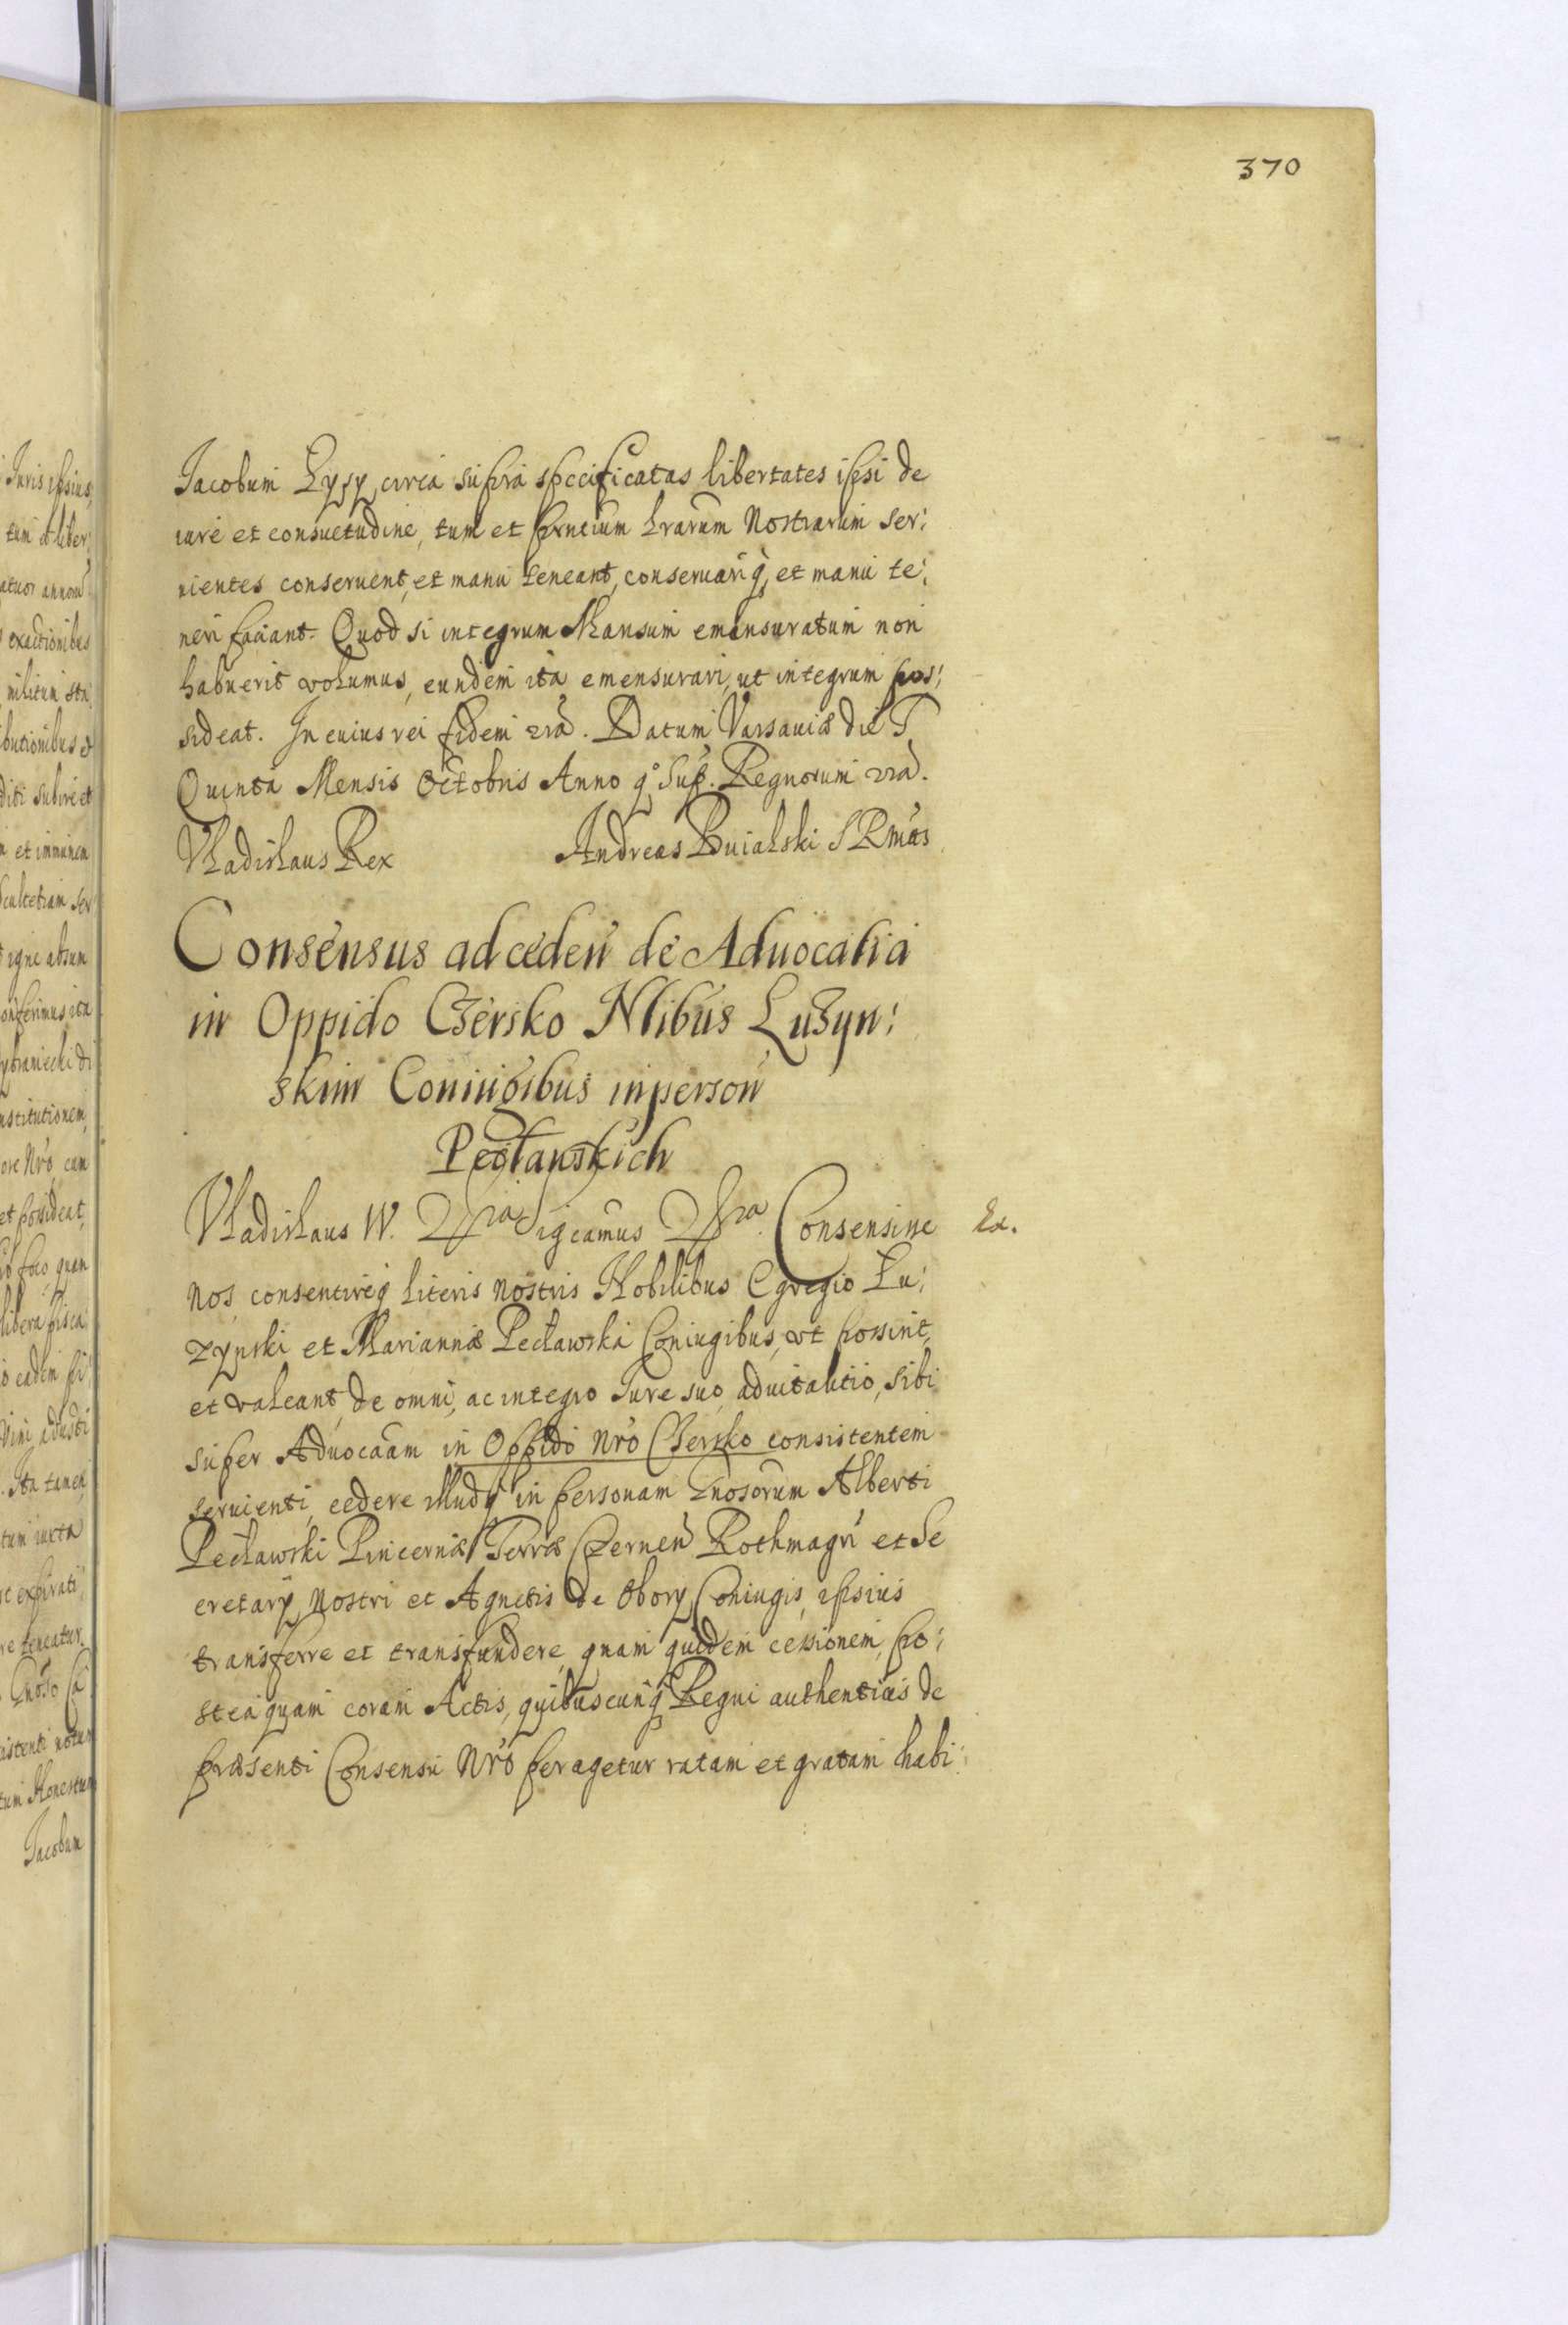 370
Jacobum Łysy, circa supra specificatas libertates ipsi de
iure et consuetudine, tum et prntium lrarum Nostrarum ser:
vientes conseruent, et manu teneant, conseruariq, et manu te:
neri faciant. Quod si integrum Mansum emensuratum non
habuerit volumus, eundem ita emensurari, ut integrum pos:
sideat. In cuius rei fidem. Datum Varsaviæ die
Quinta Mensis Octobris Anno q° Sup. Regnorum
Vladislaus Rex Andreas Buialski SRMtas
Consensus ad ceden de Aduocatia
in Oppido Czersko Nlibus Luzyn:
skim Coniugibus in person
Pecłauskich
Vladislaus IV. Sigcamus Consensisse Ex.
nos, consentireq literis nostris Nobilibus Egregio Łu:
zynski et Mariannæ Pecławska Coniugibus, vt possint,
et valeant, de omni, ac integro Iure suo, aduitalitio, sibi
super Aduocaam in Oppido Nro Czersko consistentem
seruienti, cedere illudq in personam Gnosorum Alberti
Pecławski Pincernæ Terræ Czernen Rothmagri et Se
cretarij Nostri et Agnetis de Obory, Coniugis, ipsius
transferre et transfundere, quam quidem cessionem, po:
stea quam coram Actis, quibuscunq Regni authenticis de
præsenti Consensu Nro peragetur ratam et gratam habi:
Iuris ipsius,
tum et liber:
atuor annorum
exactionibus
militum sta:
ibutionibus &
diti subire et
et immunem
Scultetiam
igne absum
onferimus ita
nstitutionem,
ore Nro, cum
et possideat,
foco, quam
libera pisca:
eadem
Ita tamen
tum iuxta
expirati
re teneatur.
Gnoso
istenti
tum Honestum
Jacobum